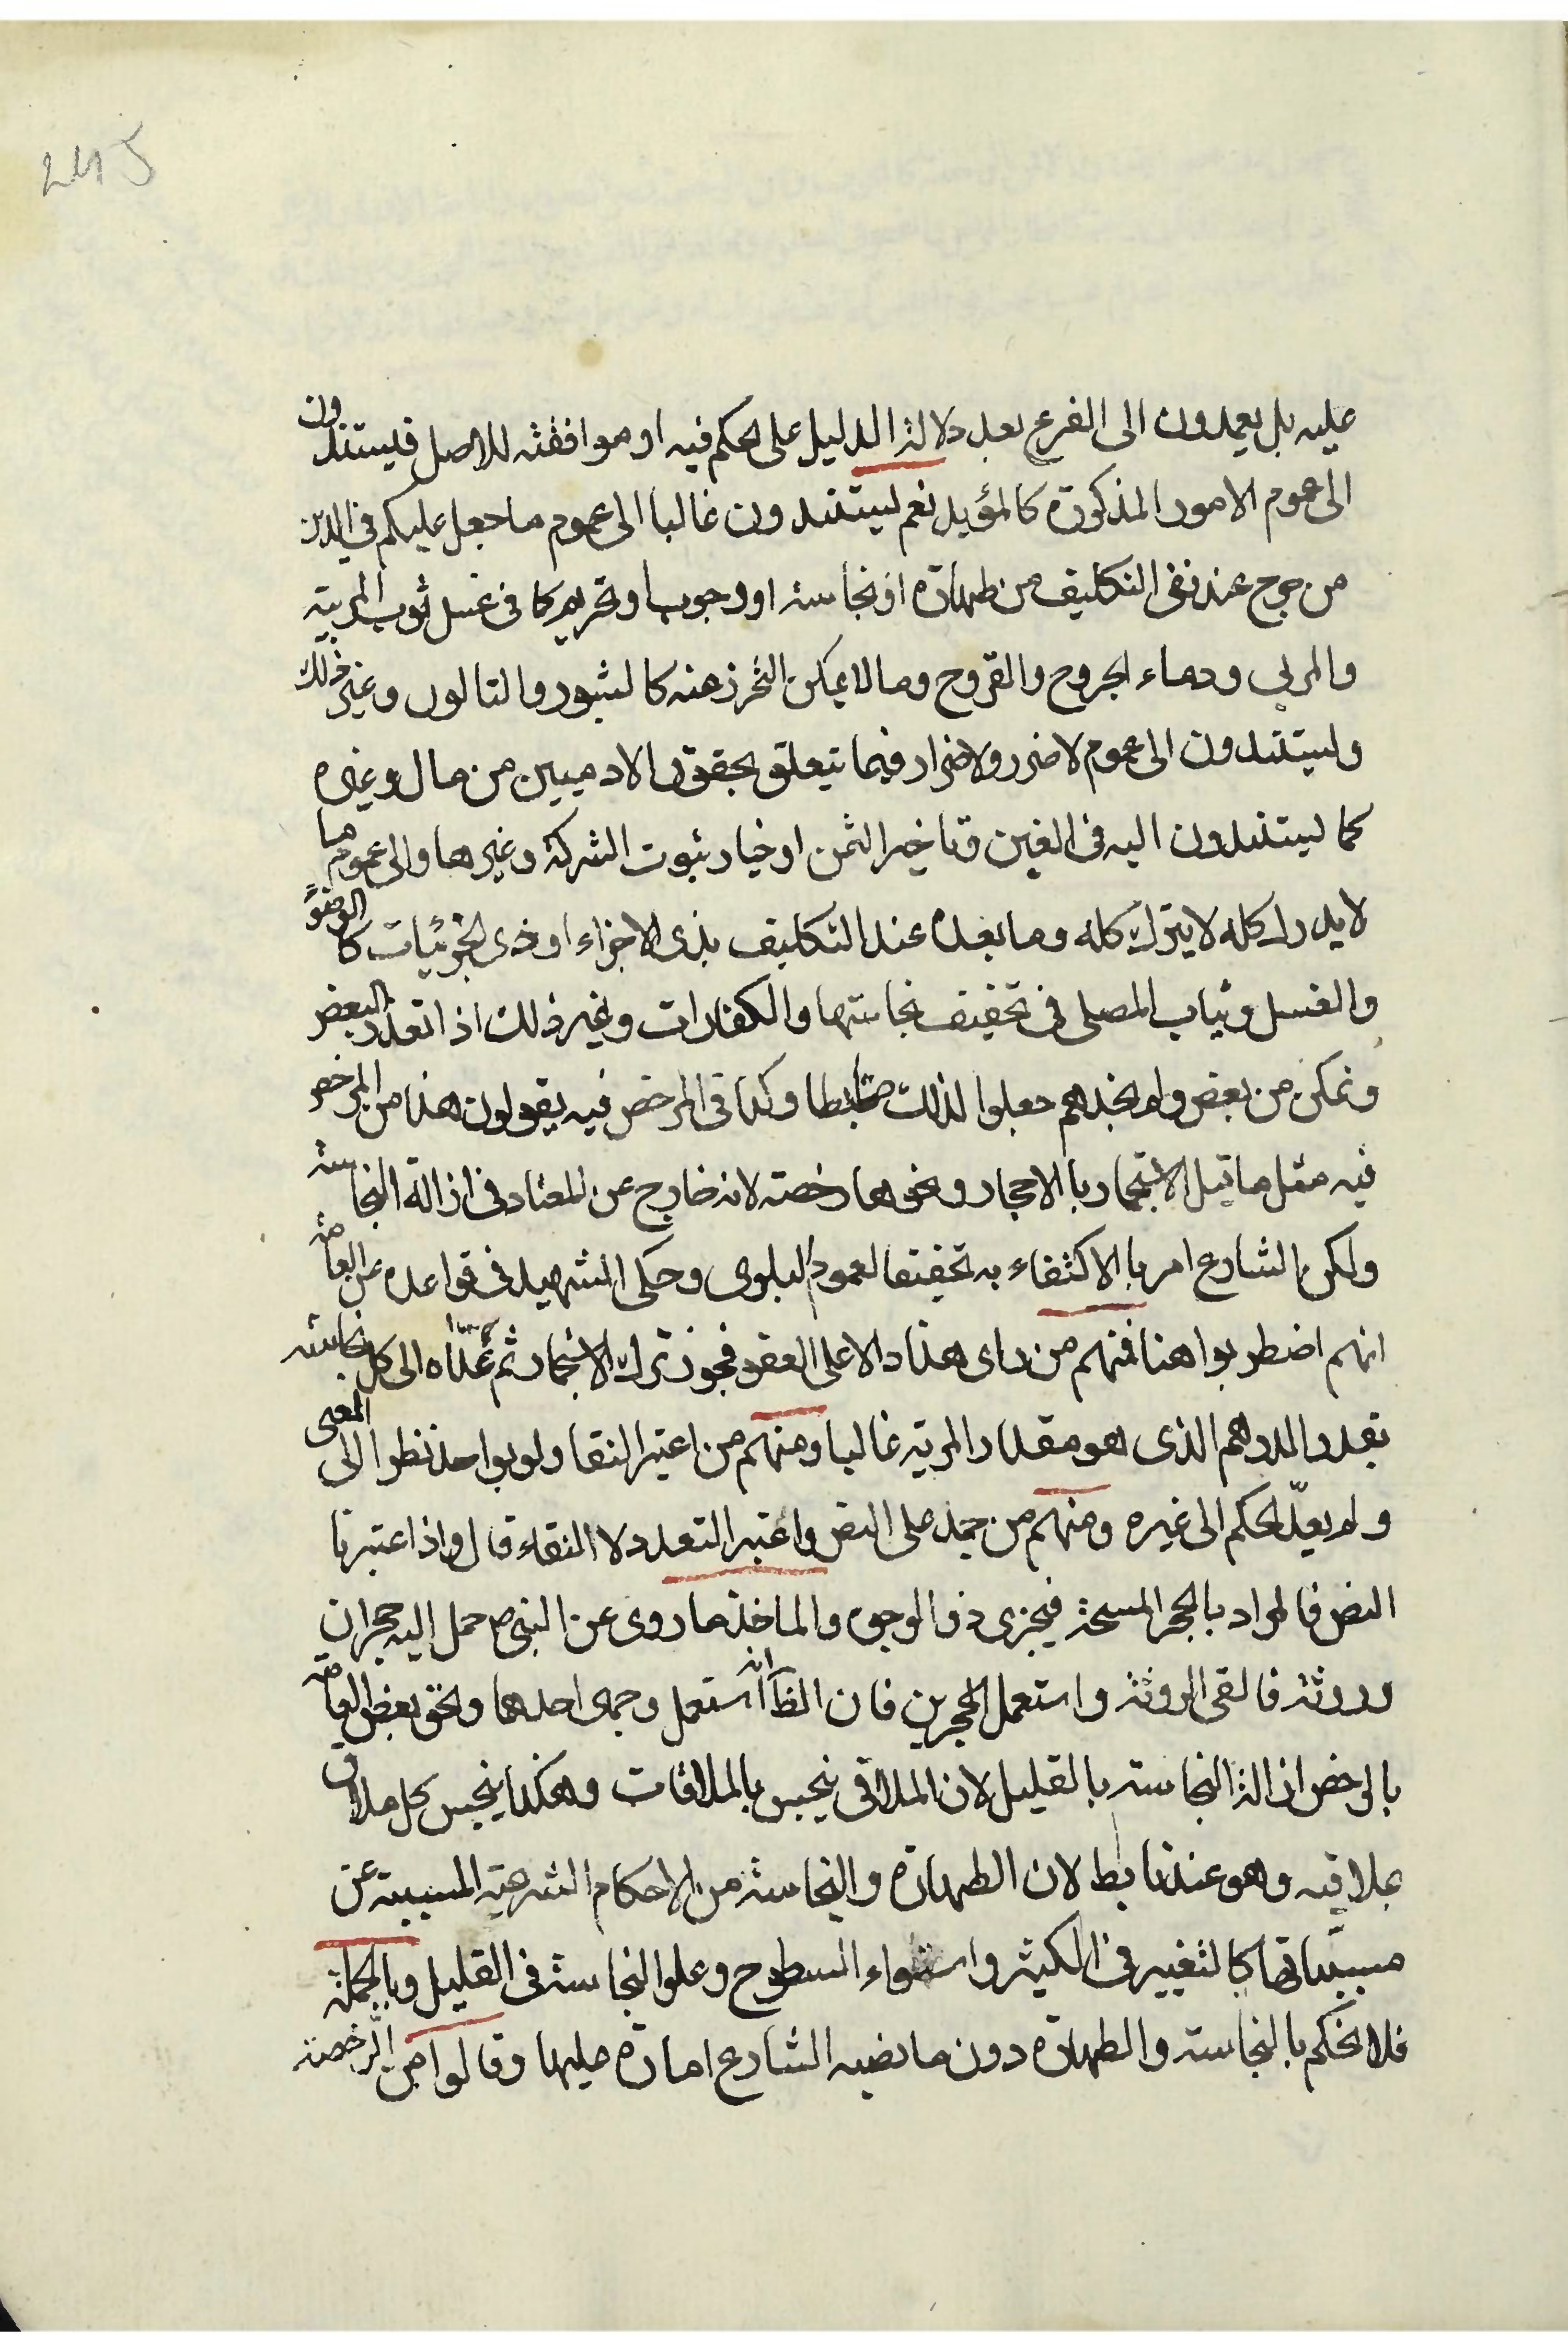 245
عليه بل يعمدون الى الفرع بعد دلالة الدليل على الحكم فيه او موافقته للاصل فيستندون
الى عموم الامور المذكورة كالمؤيد نعم يستندون غالبا الى عموم ما جعل عليكم في الدين
من حرج عند نفى التكليف من طهارة او نجاسة او وجوب او تحريم كما فى غسل ثوب المربية
والمربى ودماء الجروح والقروح وما لا يمكن التحرز عنه كالبثور والثالول وغير ذلك
ويستندون الى عموم لا ضرر ولا ضرار فيما يتعلق بحقوق الادميين من مال وغيره
كما يستندون اليه فى الغبن وتاخير الثمن او خيار ثبوت الشركة وغيرها والى عموم ما
لا يدرك كله لا يترك كله وما بعده عند التكليف بذى الاجزاء او ذى الجزئيات كالوضوء
والغسل وثياب المصلى فى تخفيف نجاستها والكفارات وغير ذلك اذا تعذر البعض
وتمكن من بعض ولم نجدهم جعلوا لذلك ضابطا وكذا فى المرخص فيه يقولون هذا من المرخص
فيه مثل ما قيل الاستجمار بالاحجار ونحوها رخصة لانه خارج عن المعتاد فى ازالة النجاسة
ولكن الشارع امر بالاكتفاء به تخفيفا لعموم البلوى وحكى الشهيد فى قواعده عن العامة
انهم اضطربوا هنا فمنهم من راى هذا دالا على العفو فجوز ترك الاستجمار ثم عداه الى كل نجاسة
بقدر الدرهم الذى هو مقدار المربة غالبا ومنهم من اعتبر النقا ولو بواحد نظرا الى المعنى
ولم يعدّ الحكم الى غيره ومنهم من جمد على النص واعتبر التعدد لا النقاء قال واذا اعتبرنا
النص فالمراد بالحجر المسحة فيجزى ذو الوجوه والماخذ ما روى عن النبى ص حمل اليه حجران
وروثة فالقى الروثة واستعمل الحجرين فان الظ انه استعمل وجهى احدهما والحق بعض العامة
بالرخص ازالة النجاسة بالقليل لان الملاقى ينجس بالملاقات وهكذا ينجس كل ملاق
بملاقيه وهو عندنا بط لان الطهارة والنجاسة من الاحكام الشرعية المسببة عن
مسبباتها كالتغيير فى الكثير واستواء السطوح وعلو النجاسة فى القليل وبالجملة
فلا نحكم بالنجاسة والطهارة دون ما نصبه الشارع امارة عليها وقالوا من الرخصة